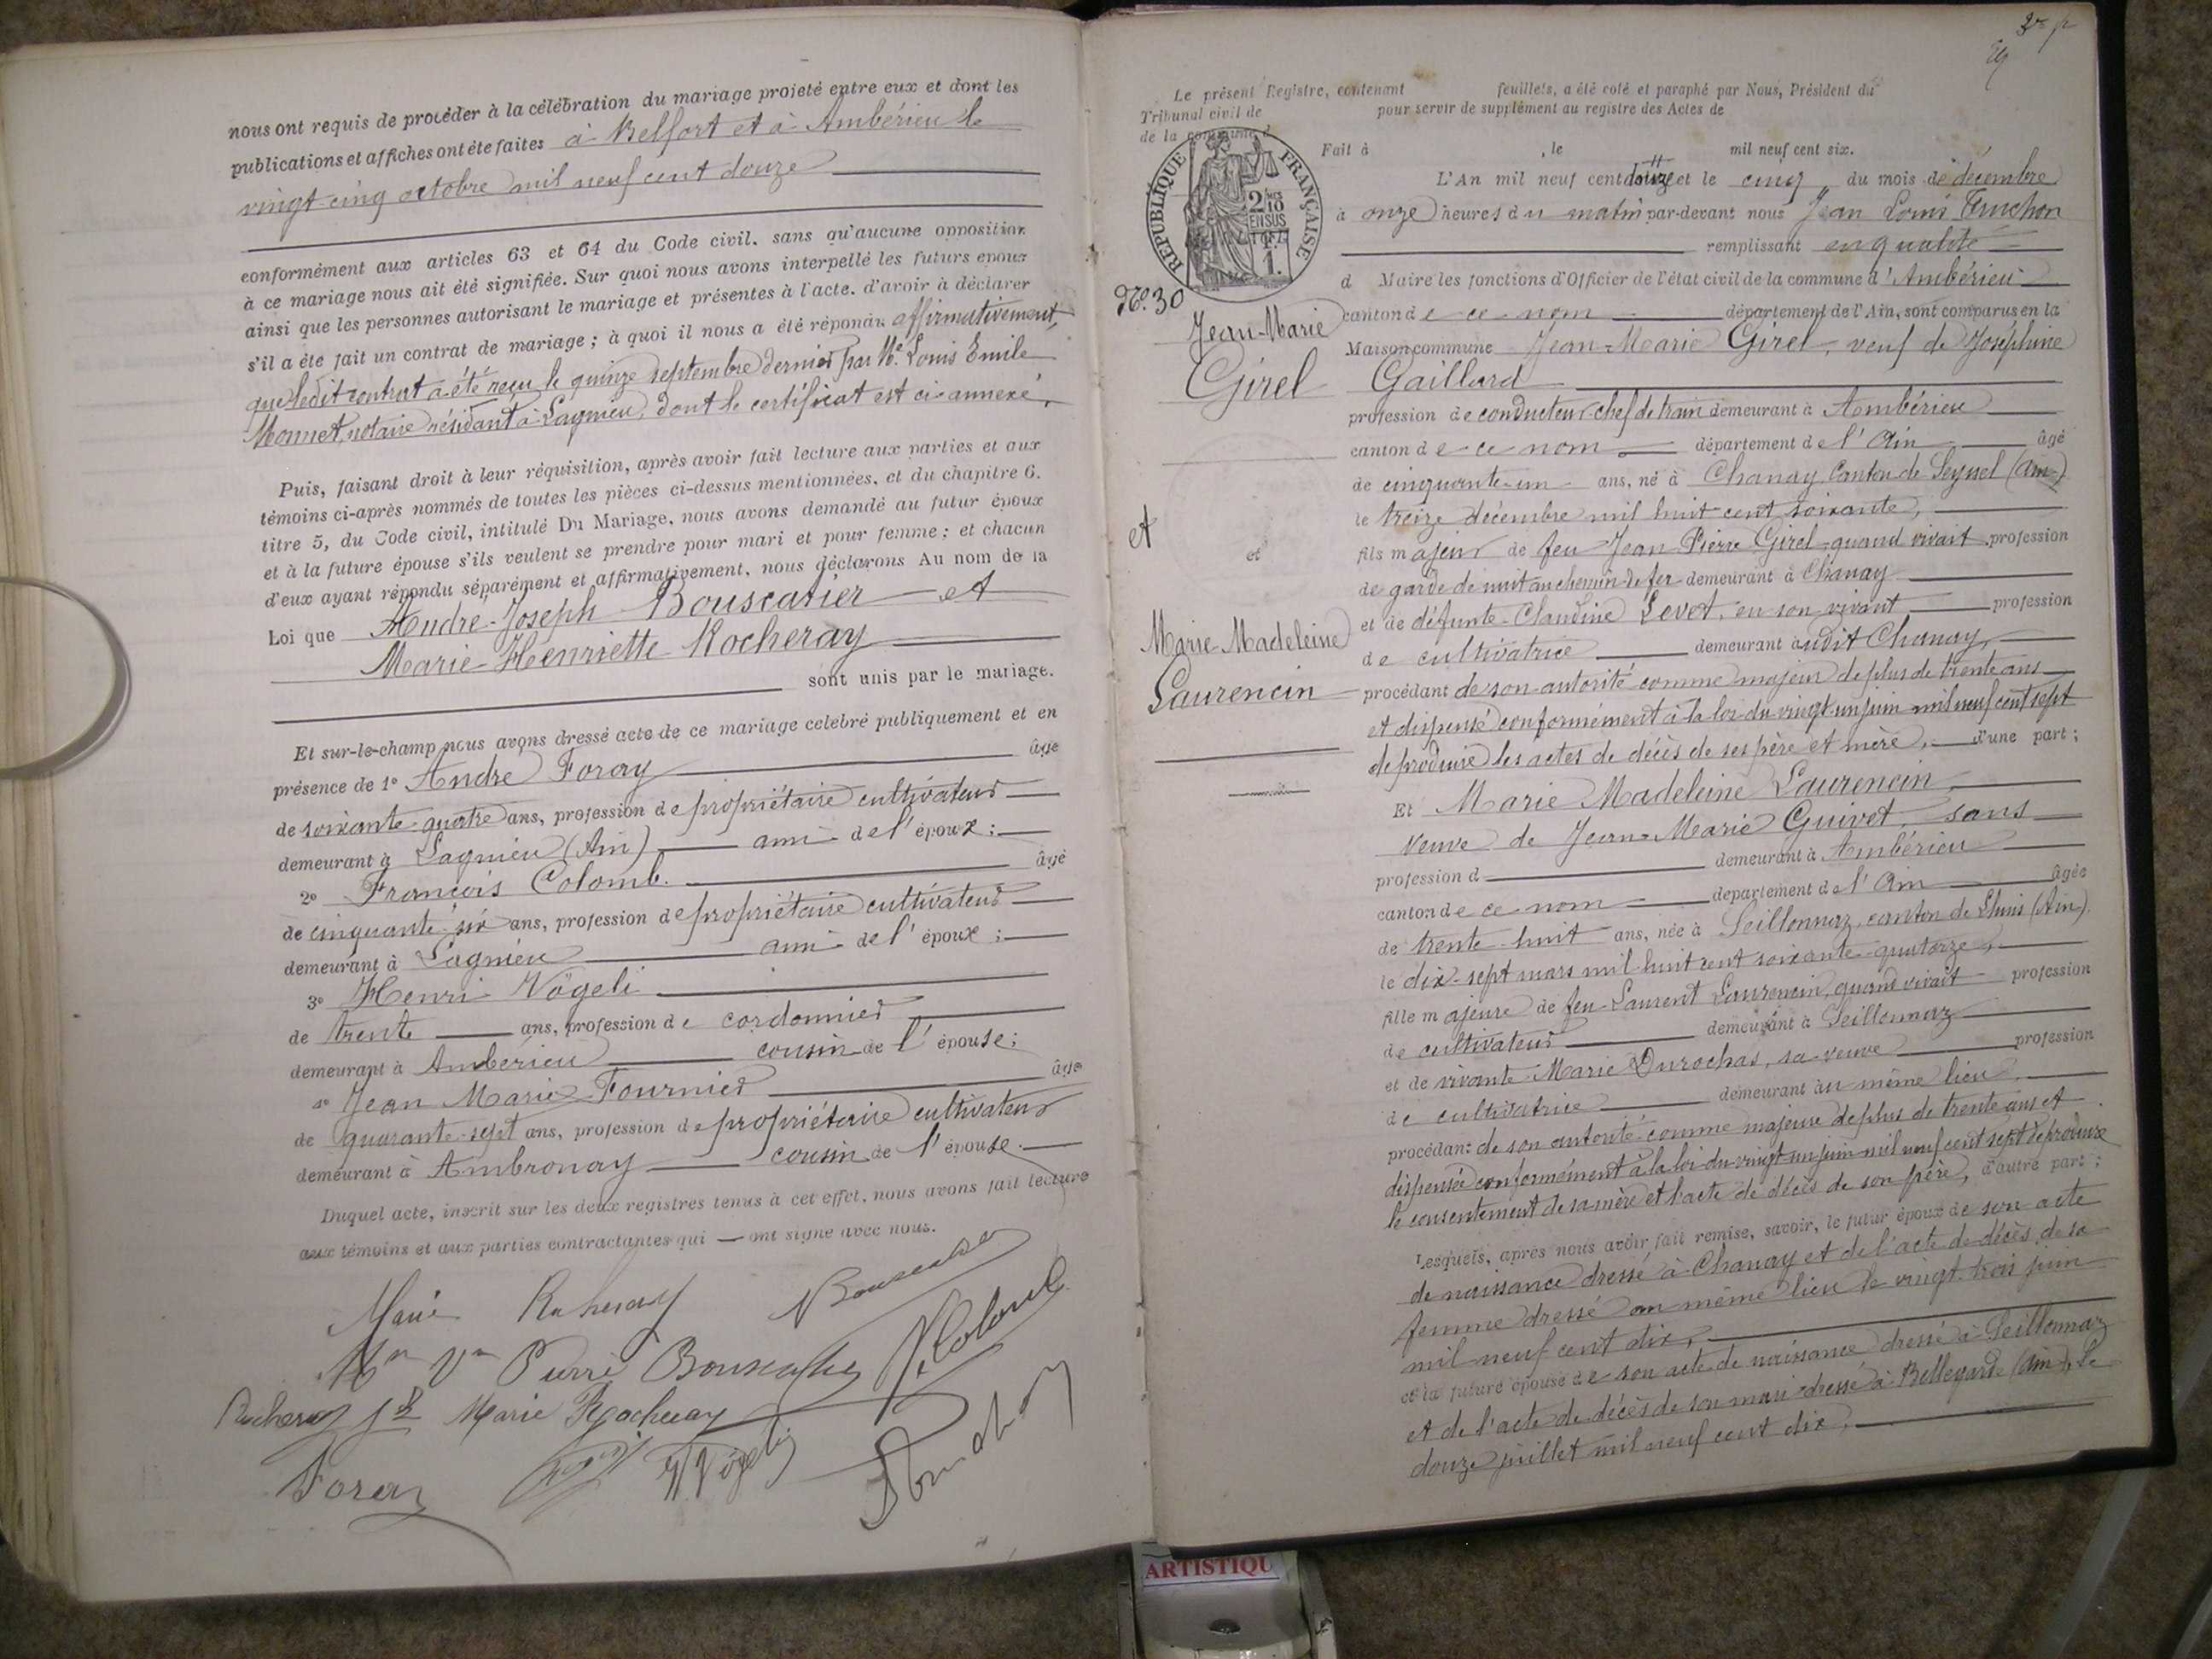 nous ont requis de procéder à la célébration du mariage projeté entre eux et dont les
publications et affiches ont été faites à Belfort et à Ambérieu le
vingt cinq octobre mil neuf cent douze
conformément aux articles 63 et 64 du Code civil, sans qu'aucune opposition
à ce mariage nous ait été signifiée. Sur quoi nous avons interpellé les futurs époux
ainsi que les personnes autorisant le mariage et présentes à l'acte, d'avoir à déclarer
s'il a été fait un contrat de mariage ; à quoi il nous a été répondu affirmativement,
que ledit contrat a été reçu le quinze septembre dernier par Me Louis Emile
Monnet, notaire résidant à Lagnieu, dont le certificat est ci-annexé.
Puis, faisant droit à leur réquisition, après avoir fait lecture aux parties et aux
témoins ci-après nommés de toutes les pièces ci-dessus mentionnées, et du chapitre 6.
titre 5, du Code civil, intitulé Du Mariage, nous avons demandé au futur époux
et à la future épouse s'ils veulent se prendre pour mari et pour femme ; et chacun
d'eux ayant répondu séparément et affirmativement, nous déclarons Au nom de la
Loi que André-Joseph Bouscatier et
Marie-Henriette Rocheray
sont unis par le mariage.
Et sur-le-champ nous avons dressé acte de ce mariage célébré publiquement et en
présence de 1° André Foray âgé
de soixante-quatre ans, profession de propriétaire cultivateur
demeurant à Lagnieu (Ain) ami de l'époux ;
2° François Colomb. âgé
de cinquante-six ans, profession de propriétaire cultivateur
demeurant à Lagnieu ami de l'époux ;
3° Henri Vögeli
de trente ans, profession de cordonnier
demeurant à Ambérieu cousin de l'épouse ;
4° Jean Marie Fournier âgé
de quarante-sept ans, profession de propriétaire cultivateur
demeurant à Ambronay cousin de l'épouse.
Duquel acte, inscrit sur les deux registres tenus à cet effet, nous avons fait lecture
aux témoins et aux parties contractantes qui ont signé avec nous.
Marie Rocheray
Vve Pierre
Rocheray Marie Rocheray
Foray H Vögeli
2 10
EN SUS
RÉPUBLIQUE FRANÇAISE
Le présent Registre, contenant feuillets, a été coté et paraphé par Nous, Président du
Tribunal civil de pour servir de supplément au registre des Actes de
de la commune d
Fait à , le mil neuf cent six.
L'An mil neuf cent douze et le cinq du mois de décembre
à onze heures du matin par-devant nous Jean Louis Truchon
remplissant en qualité
d Maire les fonctions d'Officier de l'état civil de la commune d'Ambérieu
N° 30
Jean-Marie
Girel
et
et
Marie-Madeleine
Laurencin
canton de ce nom département de l'Ain, sont comparus en la
Maison commune Jean-Marie Girel, veuf de Joséphine
Gaillard
profession de conducteur-chef de train demeurant à Ambérieu
canton de ce nom département de l'Ain âgé
de cinquante-un ans, né à Chanay, Canton de Seyssel (Ain)
le treize décembre mil huit cent soixante,
fils majeur de feu Jean-Pierre Girel quand vivait profession
de garde de nuit au chemin de fer demeurant à Chanay
et de défunte Claudine Levet, en son vivant profession
de cultivatrice demeurant audit Chanay,
procédant de son autorité comme majeur de plus de trente ans
et dispensé conformément à la loi du vingt-un juin mil neuf cent sept
de produire les actes de décès de ses père et mère, d'une part ;
Et Marie Madeleine Laurencin,
veuve de Jean-Marie Guivet, sans
profession d demeurant à Ambérieu
canton de ce nom département de l'Ain âgée
de trente-huit ans, née à Seillonnaz, canton de Lhuis (Ain)
le dix-sept mars mil huit cent soixante-quatorze,
fille majeure de feu Laurent Laurencin, quand vivait profession
de cultivateur demeurant à Seillonnaz
et de vivante Marie Durochas, sa veuve profession
de cultivatrice demeurant au même lieu,
procédant de son autorité comme majeure de plus de trente ans et
dispensée conformément à la loi du vingt un juin mil neuf cent sept de produire
le consentement de sa mère et l'acte de décès de son père, d'autre part ;
Lesquels, après nous avoir fait remise, savoir, le futur époux de son acte
de naissance dressé à Chanay et de l'acte de décès de sa
femme dressé au même lieu le vingt-trois juin
mil neuf cent dix,
et la future épouse de son acte de naissance dressé à Seillonnaz
et de l'acte de décès de son mari dressé à Bellegarde (Ain), le
douze juillet mil neuf cent dix,
ARTISTIQU